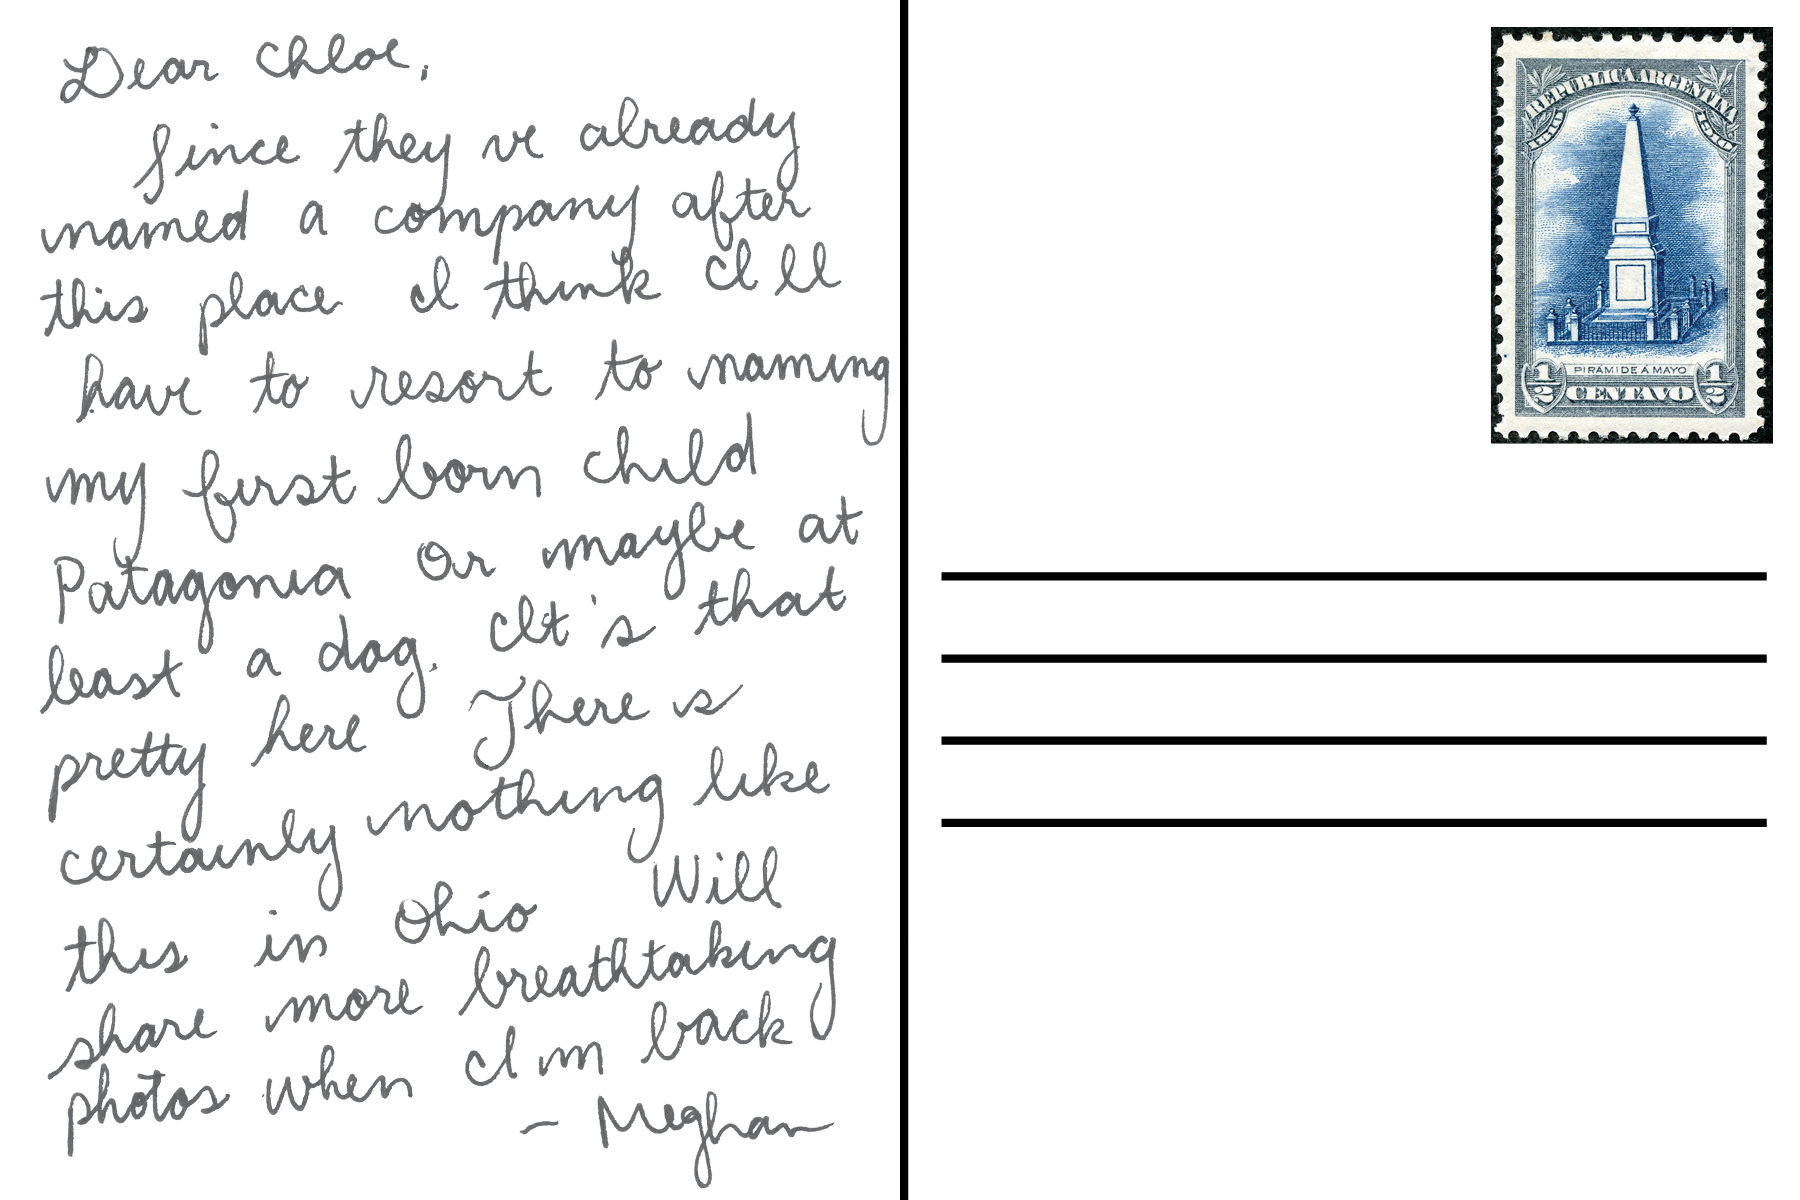 Dear Chloe,
Since they ve already
named a company after
this place I think I ll
have to resort to naming
my first born child
Patagonia Or maybe at
least a dog. It's that
pretty here There is
certainly nothing like
this in Ohio Will
share more breathtaking
photos when I m back
- Meghan
REPUBLICA ARGENTINA
1810 1910
PIRAMIDE Á MAYO
1/2 CENTAVO 1/2